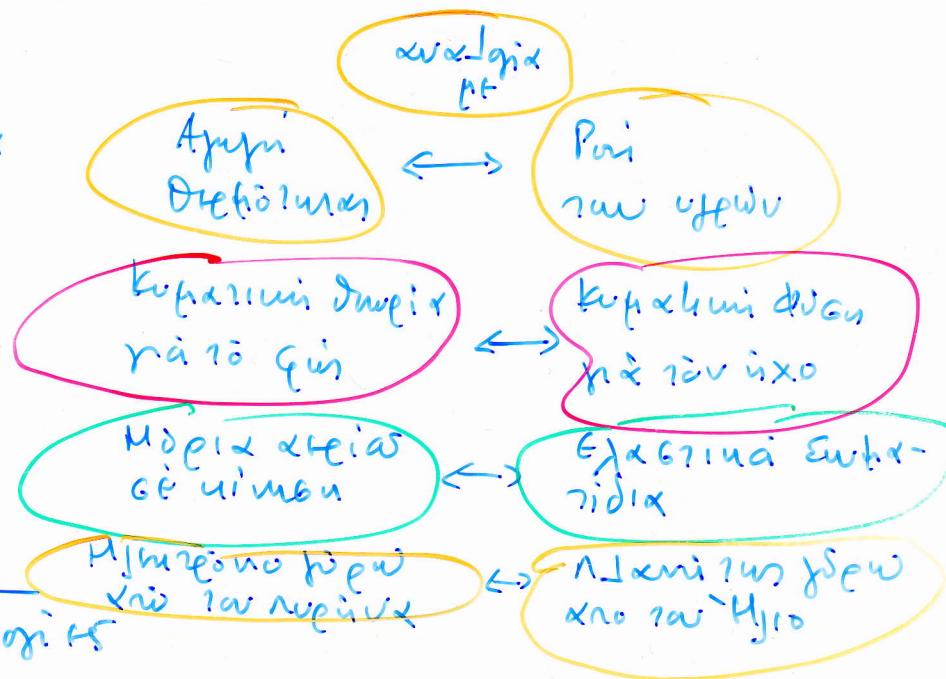 αναλογία
με
Αγωγή
θερμότητας
Ροή
των υγρών
Κυματική θεωρία
γιά τό φώς
Κυματική φύση
γιὰ τὸν ἦχο
Μόρια αερίου
σέ κίνηση
Ελαστικά Σωμα-
τίδια
Ηλεκτρόνιο γύρω
από τον πυρήνα
Πλανήτης γύρω
απο τον Ήλιο